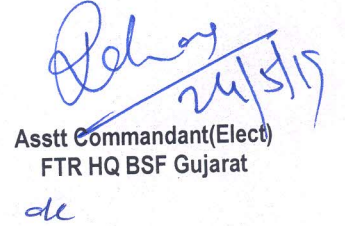 24/5/19
Asstt Commandant(Elect)
FTR HQ BSF Gujarat